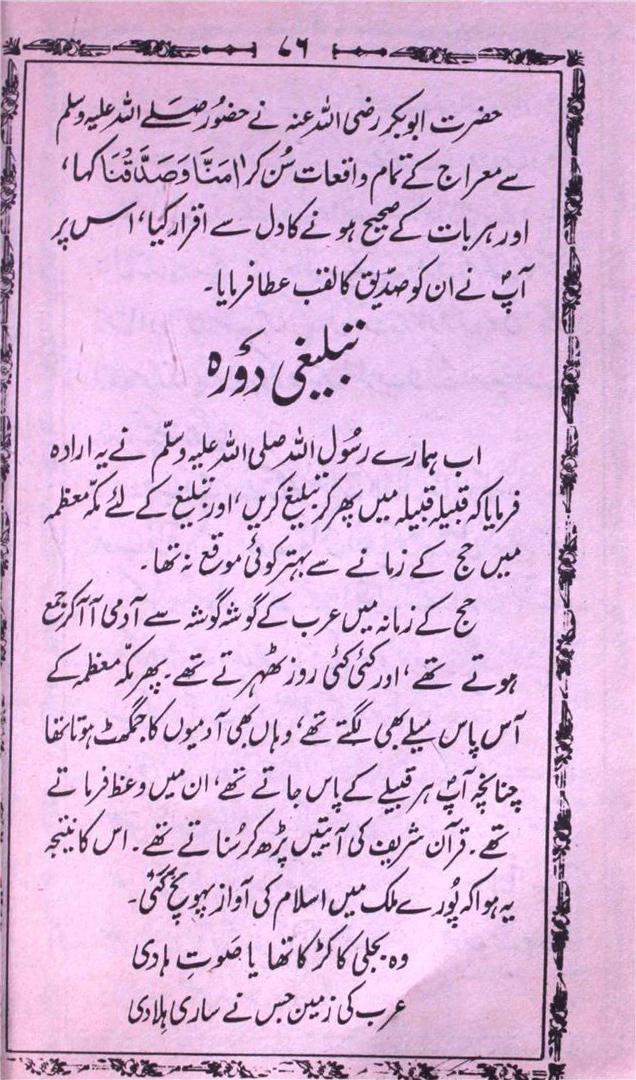 ۸۶
حضرت ابوبکر رضی اللہ عنہ نے حضور صلے اللہ علیہ وسلم
سے معراج کے تمام واقعات سُن کر اٰمَنَّا وَصَدَّقْنَا کہا،
اور ہر بات کے صحیح ہونے کا دل سے اقرار کیا، اس پر
آپؐ نے ان کو صدّیق کا لقب عطا فرمایا۔
تبلیغی دَورہ
اب ہمارے رسُول اللہ صلی اللہ علیہ وسلّم نے یہ ارادہ
فرمایا کہ قبیلہ قبیلہ میں پھر کر تبلیغ کریں، اور تبلیغ کے لئے مکّہ معظمہ
میں حج کے زمانے سے بہتر کوئی موقع نہ تھا۔
حج کے زمانہ میں عرب کے گوشہ گوشہ سے آدمی آ آ کر جمع
ہوتے تھے، اور کئی کئی روز ٹھہرتے تھے۔ پھر مکّہ معظمہ کے
آس پاس میلے بھی لگتے تھے، وہاں بھی آدمیوں کا جمگھٹ ہوتا تھا
چنانچہ آپؐ ہر قبیلے کے پاس جاتے تھے، ان میں وعظ فرماتے
تھے۔ قرآن شریف کی آیتیں پڑھ کر سُناتے تھے۔ اس کا نتیجہ
یہ ہوا کہ پُورے ملک میں اسلام کی آواز پہونچ گئی۔
وہ بجلی کا کڑکا تھا یا صَوتِ ہادی
عرب کی زمین جس نے ساری ہلادی